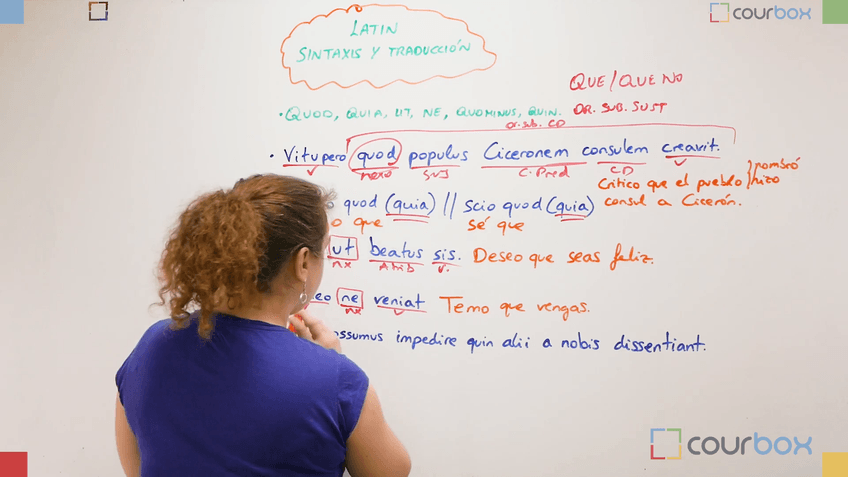 courbox
LATIN
SINTAXIS Y TRADUCCIÓN
QUE/QUE NO
• QUOD, QUIA, UT, NE, QUOMINUS, QUIN. OR. SUB. SUST
Or. sub. CD
• Vitupero quod populus Ciceronem consulem creavit.
nexo SUJ C. Pred CD V
Critico que el pueblo nombró
hizo
consul a Cicerón.
quod (quia) // scio quod (quia)
que sé que
ut beatus sis. Deseo que seas feliz.
nx Atrib v.
ne veniat Temo que vengas.
nx v
impedire quin alii a nobis dissentiant.
courbox